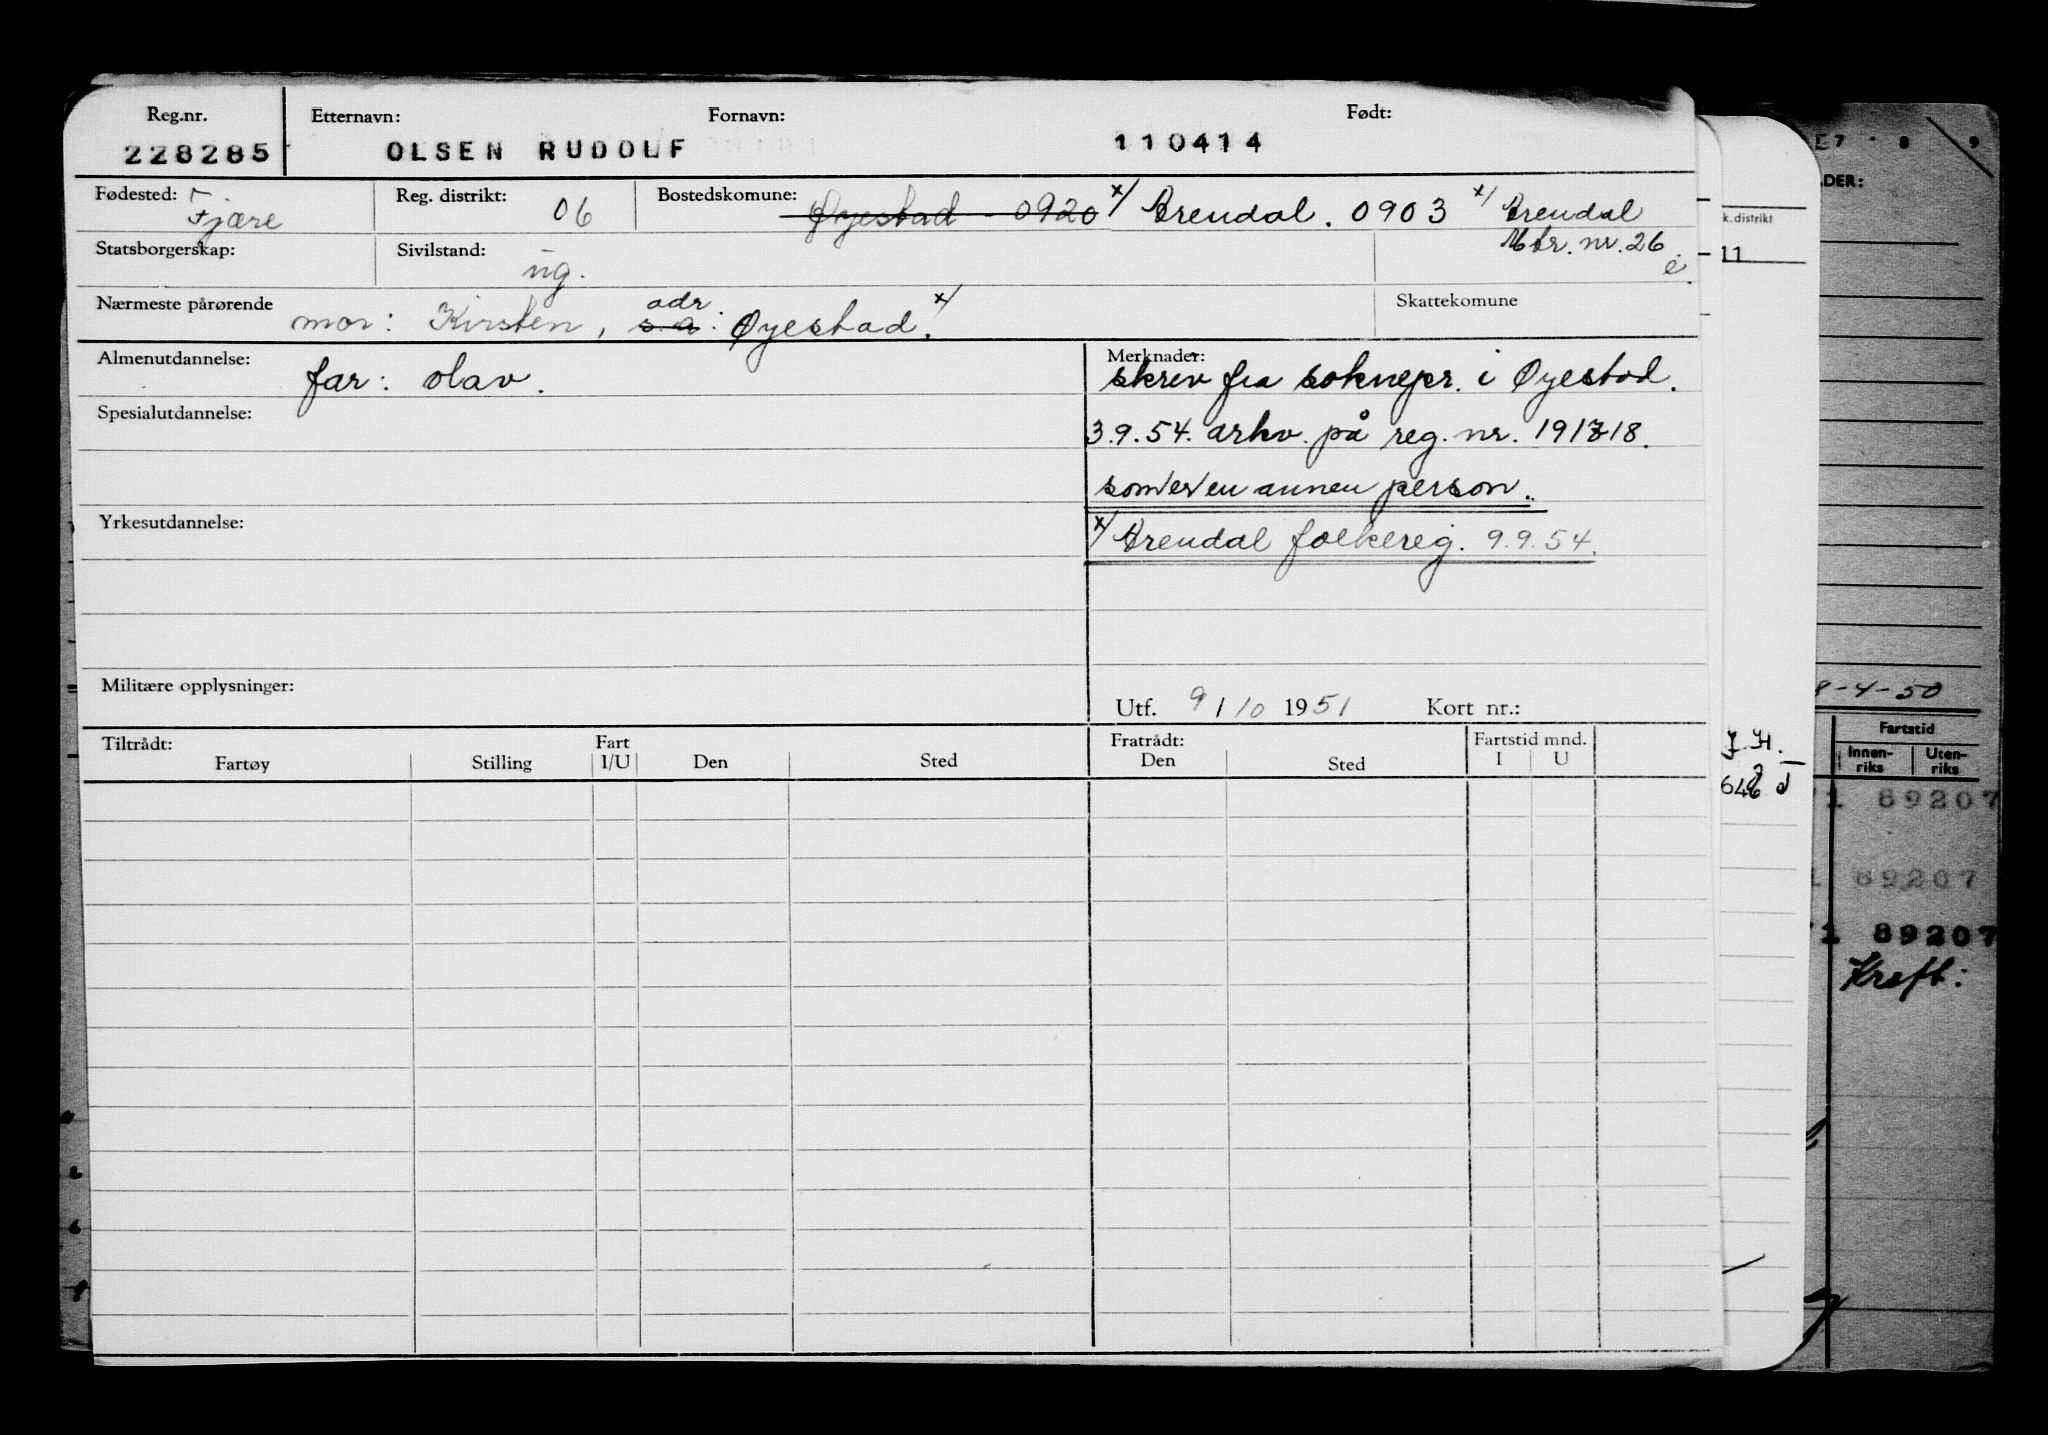 Reg.nr. Etternavn: Fornavn: Født:
228285 OLSEN RUDOLF 110414
Fødested: Fjære Reg. distrikt: 06 Bostedskomune: Øyestad - 0920 x/ Arendal. 0903 x/ Arendal
Mtr. nr. 26
Statsborgerskap: Sivilstand: ug.
Nærmeste pårørende mor: Kirsten, s.a: adr Øyestad. x/ Skattekomune
Almenutdannelse: far: Olav. Merknader:
skrev fra soknepr. i Øyestad.
Spesialutdannelse:
3.9.54. arkv. på reg. nr. 191718.
som er en annen person.
Yrkesutdannelse:
x/ Arendal folkereg. 9.9.54.
Militære opplysninger:
Utf. 9/10 1951 Kort nr.:
Tiltrådt: Fart Fratrådt: Fartstid mnd.
Fartøy Stilling I/U Den Sted Den Sted I U
E7 · 8 9
ADER:
k.distrikt
11
9-4-50
Fartstid
Innen-riks Uten-riks
J.H.
1 89207
1 89207
1 89207
Kreft.